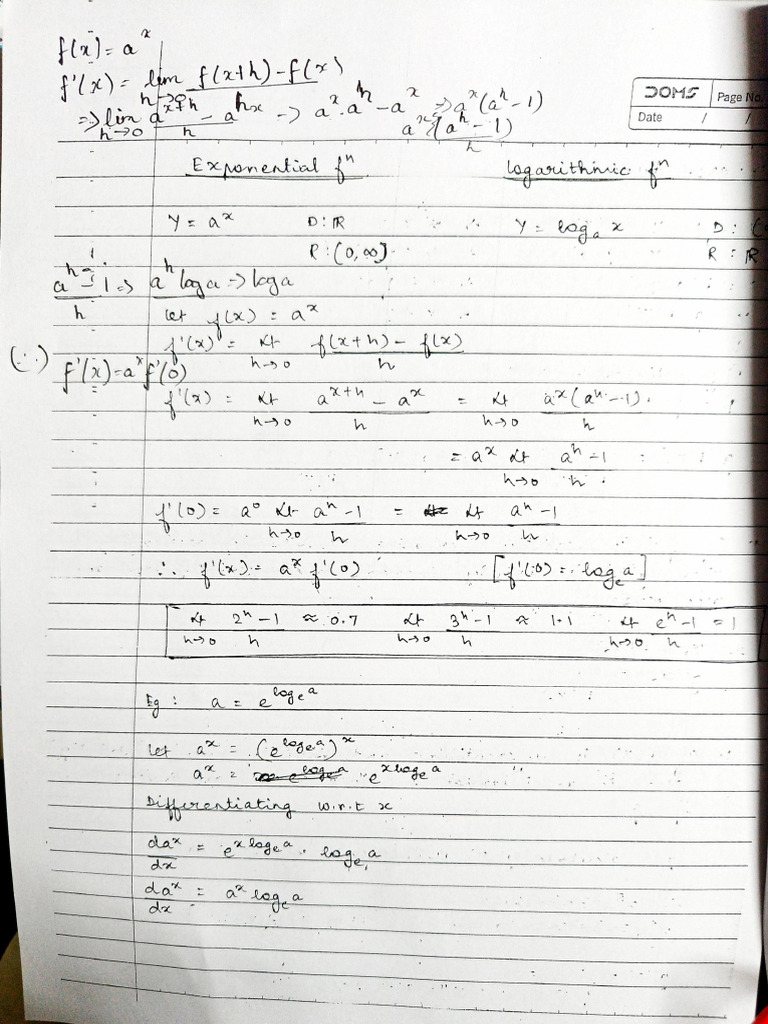 f(x) = a^x
f'(x) = lim h→0 f(x+h) - f(x)
⇒ lim h→0 (a^(x+h) - a^(hx))/h → a^x · a^h - a^x ⇒ a^x(a^h - 1)
a^x (a^h - 1)/h
DOMS Page No.
Date / /
Exponential f^n Logarithmic f^n
Y = a^x D : ℝ Y = log_a x D : (
R : (0, ∞) R : ℝ
(a^h - 1)/h ⇒ a^h log a → log a
Let f(x) = a^x
f'(x) = Lt h→0 (f(x+h) - f(x))/h
(∴) f'(x) = a^x f'(0)
f'(x) = Lt h→0 (a^(x+h) - a^x)/h = Lt h→0 a^x(a^h - 1)/h
= a^x Lt h→0 (a^h - 1)/h
f'(0) = a^0 Lt h→0 (a^h - 1)/h = Lt h→0 (a^h - 1)/h
∴ f'(x) = a^x f'(0) [f'(0) = log_e a]
Lt h→0 (2^h - 1)/h ≈ 0.7 Lt h→0 (3^h - 1)/h ≈ 1.1 Lt h→0 (e^h - 1)/h = 1
Eg : a = e^(log_e a)
Let a^x = (e^(log_e a))^x
a^x = e^(x log_e a)
Differentiating w.r.t x
da^x/dx = e^(x log_e a) · log_e a
da^x/dx = a^x log_e a